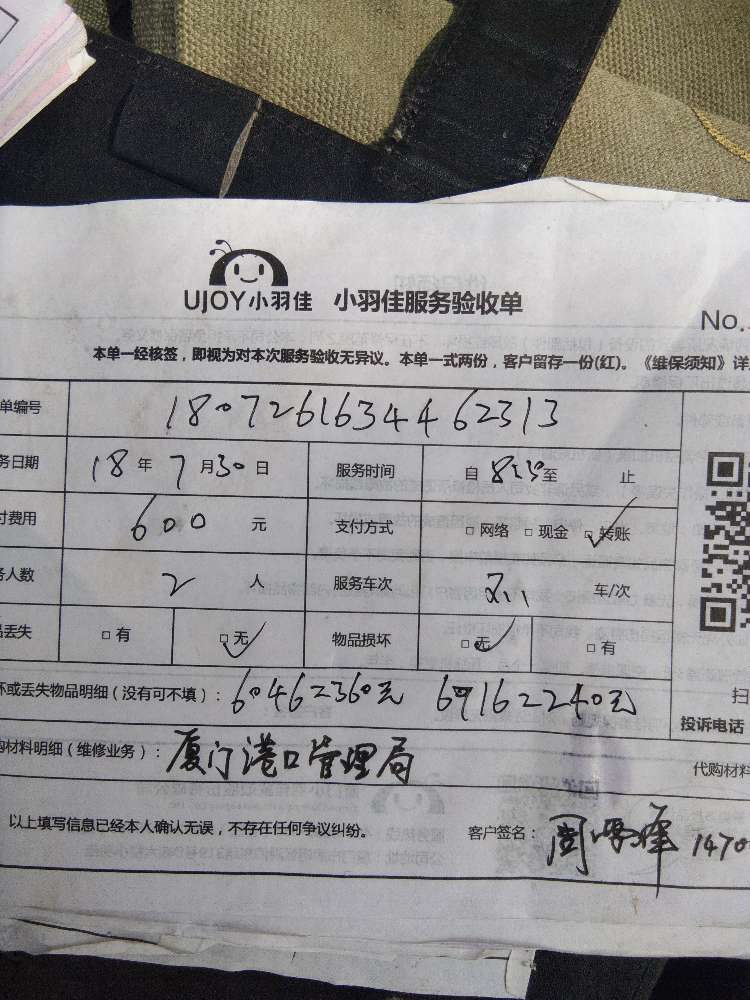 UJOY小羽佳 小羽佳服务验收单
No.
本单一经核签，即视为对本次服务验收无异议。本单一式两份，客户留存一份(红)。《维保须知》详
单编号 1807261634462313
务日期 18 年 7 月 30 日 服务时间 自 至 止
付费用 600 元 支付方式 □ 网络 □ 现金 □ 转账
务人数 2 人 服务车次 车/次
品丢失 □ 有 □ 无 物品损坏 □ 无 □ 有
坏或丢失物品明细（没有可不填）： 60462360元 69162240元
扫
投诉电话
购材料明细（维修业务）： 厦门港口管理局
代购材料
以上填写信息已经本人确认无误，不存在任何争议纠纷。 客户签名： 1470